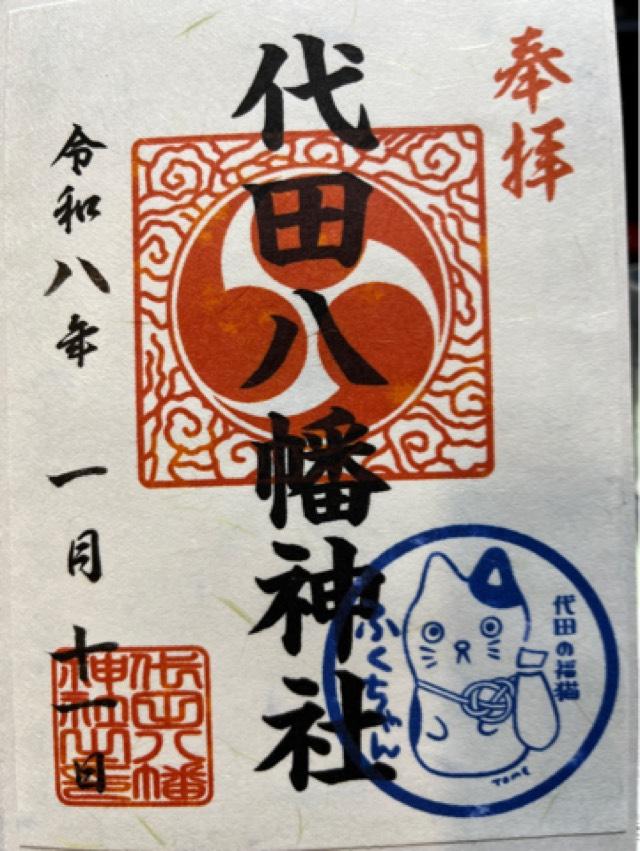 奉拝
代田八幡神社
令和八年 一月 十一日
代田八幡
神社
代田の福猫
ふくちゃん
TOME